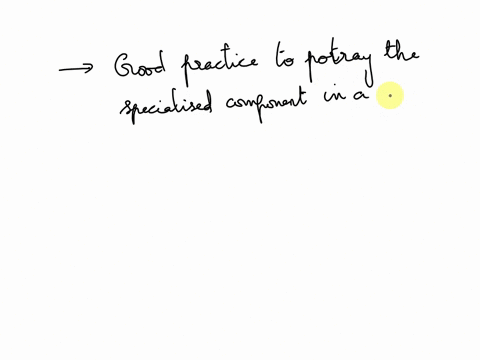 → Good practice to potray the
specialised component in a